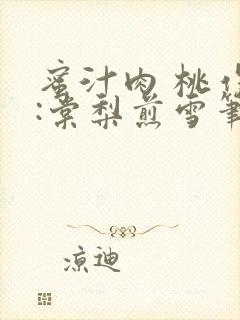 蜜汁肉桃作
:棠梨煎雪筆
凉迪